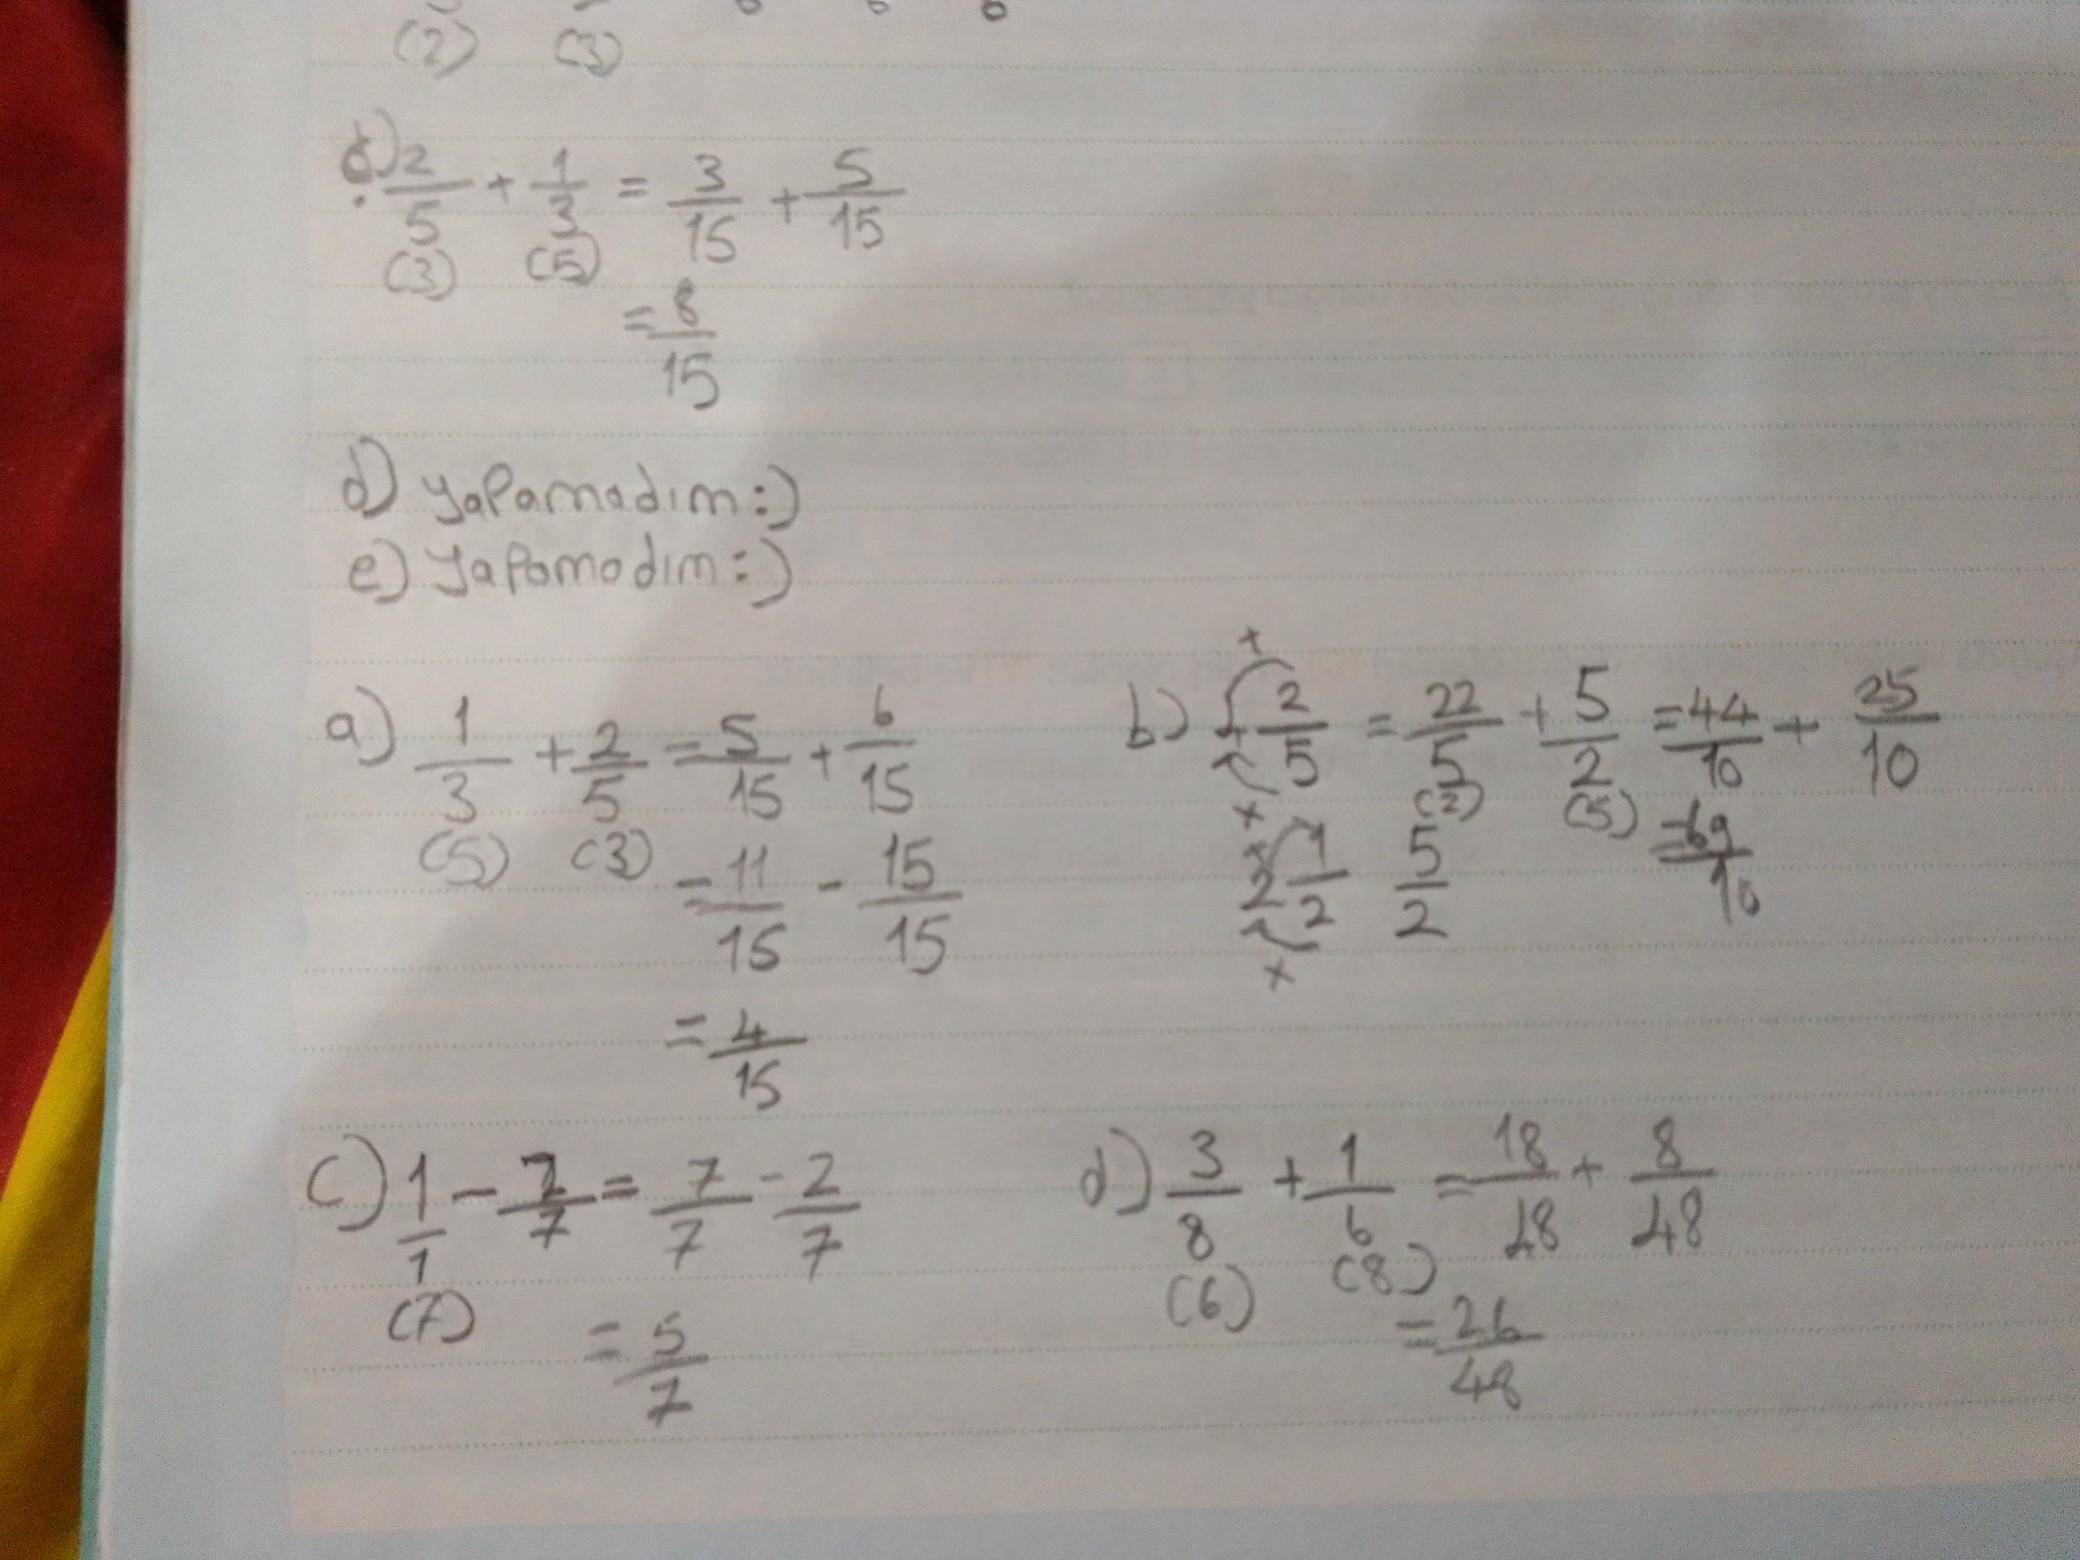 (2) (3)
ç) 2/5 + 1/3 = 3/15 + 5/15
(3) (5)
= 8/15
d) yapamadım :)
e) yapamadım :)
a) 1/3 + 2/5 = 5/15 + 6/15
(5) (3)
= 11/15 - 15/15
= 4/15
b) 4 2/5 = 22/5 + 5/2 = 44/10 + 25/10
+ x (2) (5)
= 69/10
2 1/2 5/2
+ x
c) 1/1 - 2/7 = 7/7 - 2/7
(7)
= 5/7
d) 3/8 + 1/6 = 18/48 + 8/48
(6) (8)
= 26/48